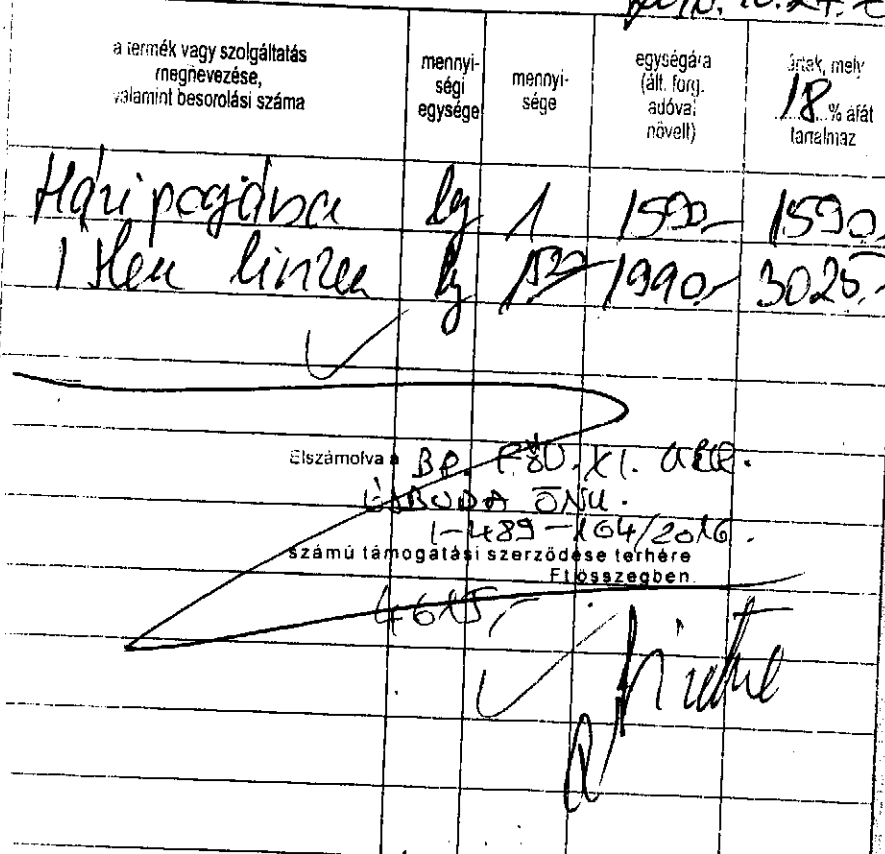 2016. 10. 27.
a termék vagy szolgáltatás megnevezése, valamint besorolási száma
mennyi-ségi egysége
mennyi-sége
egységára (ált. forg. adóval növelt)
értek, mely 18 % áfát tartalmaz
Házi pogácsa kg 1 1590,- 1590,-
linzer kg 1,520 1990,- 3025,-
Elszámolva a BP. FŐV. XI. KER.
ÚJBUDA ÖNK.
1-489-164/2016.
számú támogatási szerződése terhére
Ft összegben.
4615,-